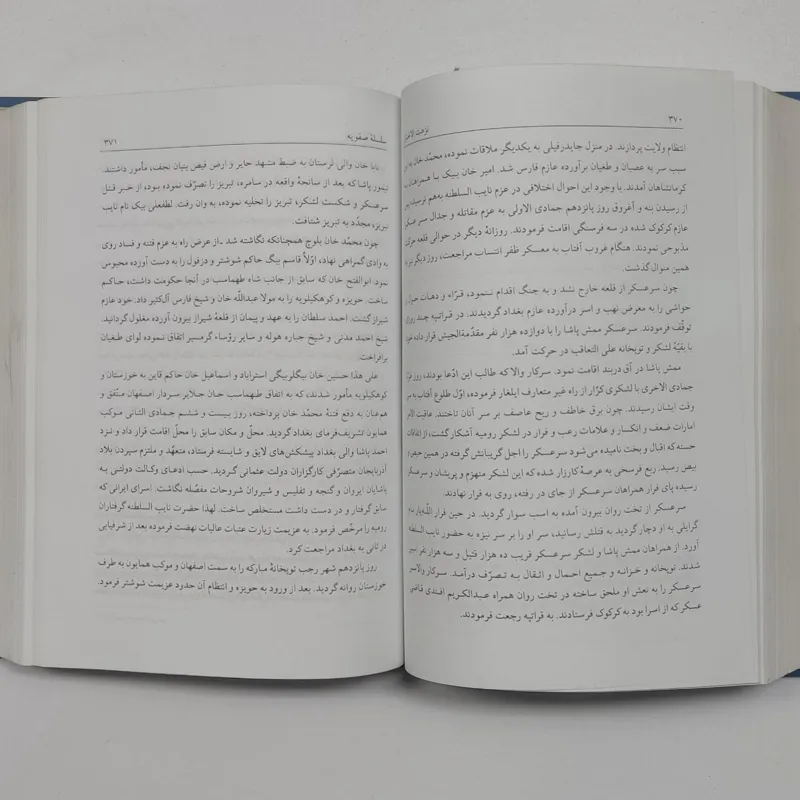 ۳۷۰
نزهت الاخبار
انتظام ولایت پردازند. در منزل جایدرفیلی به یکدیگر ملاقات نموده، محمّد خان به این
سبب سر به عصیان و طغیان برآورده عازم فارس شد. امیر خان بیک با همراهان به
کرمانشاهان آمدند. با وجود این احوال اختلافی در عزم نایب السلطنه به‌هم نرسیده پس
از رسیدن بنه و آغروق روز پانزدهم جمادی الاولی به عزم مقاتله و جدال سرعسکر
عازم کرکوک شده در سه فرسنگی اقامت فرمودند. روزانهٔ دیگر در حوالی قلعه
مذبوحی نمودند. هنگام غروب آفتاب به معسکر ظفر انتساب مراجعت، روز دیگر نیز به
همین منوال گذشت.
چون سرعسکر از قلعه خارج نشد و به جنگ اقدام ننمود، قراء و دهات حول و
حواشی را به معرض نهب و اسر درآورده عازم بغداد گردیدند. در قراتپه چند روزی
توقّف فرمودند. سرعسکر ممش پاشا را با دوازده هزار نفر مقدّمةالجیش قرار داده خود
با بقیّهٔ لشکر و توپخانه علی التعاقب در حرکت آمد.
ممش پاشا در آق دربند اقامت نمود. سرکار والا که طالب این ادّعا بودند، روز
جمادی الاخری با لشکری کرّار از راه غیر متعارف ایلغار فرموده، اوّل طلوع آفتاب به سر
وقت ایشان رسیدند. چون برق خاطف و ریح عاصف بر سر آنان تاختند. عاقبت الامر
امارات ضعف و انکسار و علامات رعب و فرار در لشکر رومیه آشکار گشت، از اتفاقات
حسنه که اقبال و بخت نامیده می‌شود سرعسکر را اجل گریبانش گرفته در همین
بیض رسید. ربع فرسخی به عرصهٔ کارزار شده که این لشکر منهزم و پریشان و سرعسکر
رسیده پای فرار همراهان سرعسکر از جای در رفته، روی به فرار نهادند.
سرعسکر از تخت روان بیرون آمده به اسب سوار گردید. در حین فرار اللّه‌یار
گرایلی به او دچار گردید به قتلش رسانید، سر او را بر سر نیزه به حضور نایب السلطنه
آورد. از همراهان ممش پاشا و لشکر سرعسکر قریب ده هزار قتیل و سه هزار نفر اسیر
شدند. توپخانه و خزانه و جمیع احمال و اثقال به تصرّف درآمد. سرکار والا سر
سرعسکر را به نعش او ملحق ساخته در تخت روان همراه عبدالکریم افندی قاضی
عسکر که از اسرا بود به کرکوک فرستادند. به قراتپه رجعت فرمودند.
سلسلهٔ صفویه
۳۷۱
بابا خان والی لرستان به ضبط مشهد حایر و ارض فیض بنیان نجف، مأمور داشتند.
تیمور پاشا که بعد از سانحهٔ واقعه در سامره، تبریز را تصرّف نموده بود، از خبر قتل
سرعسکر و شکست لشکر، تبریز را تخلیه نموده، به وان رفت. لطفعلی بیک نام نایب
تبریز، مجدّد به تبریز شتافت.
چون محمّد خان بلوچ همچنانکه نگاشته شد ـ از عرض راه به عزم فتنه و فساد روی
به وادی گمراهی نهاد، اوّلاً قاسم بیگ حاکم شوشتر و دزفول را به دست آورده محبوس
نمود. ابوالفتح خان که سابق از جانب شاه طهماسب در آنجا حکومت داشت، حاکم
ساخت. حویزه و کوهکیلویه را به مولا عبداللّه خان و شیخ فارس آل‌کثیر داد. خود عازم
شیراز گشت. احمد سلطان را به عهد و پیمان از قلعهٔ شیراز بیرون آورده مغلول گردانید.
شیخ احمد مدنی و شیخ جباره هوله و سایر رؤساء گرمسیر اتفاق نموده لوای طغیان
برافراخت.
علی هذا حسنین خان بیگلربیگی استراباد و اسماعیل خان حاکم قاین به خوزستان و
کوهکیلویه مأمور شدند، که به اتفاق طهماسب خان جلایر سردار اصفهان متّفق و
هم‌عنان به دفع فتنهٔ محمّد خان پرداخته، روز بیست و ششم جمادی الثانی موکب
همایون تشریف‌فرمای بغداد گردید. محل و مکان سابق را محلّ اقامت قرار داد و نزد
احمد پاشا والی بغداد پیشکش‌های لایق و شایسته فرستاد، متعهّد و ملتزم سپردن بلاد
آذربایجان متصرّفی کارگزاران دولت عثمانی گردید. حسب ادعای وکالت دولتی به
پاشایان ایروان و گنجه و تفلیس و شیروان شروحات مفصّله نگاشت. اسرای ایرانی که
سابق گرفتار و در دست داشت مستخلص ساخت. لهذا حضرت نایب السلطنه گرفتاران
رومیه را مرخّص فرمود. به عزیمت زیارت عتبات عالیات نهضت فرموده بعد از شرفیابی
در ثانی به بغداد مراجعت کرد.
روز پانزدهم شهر رجب توپخانهٔ مبارکه را به سمت اصفهان و موکب همایون به طرف
خوزستان روانه گردید. بعد از ورود به حویزه و انتظام آن حدود عزیمت شوشتر فرمود.